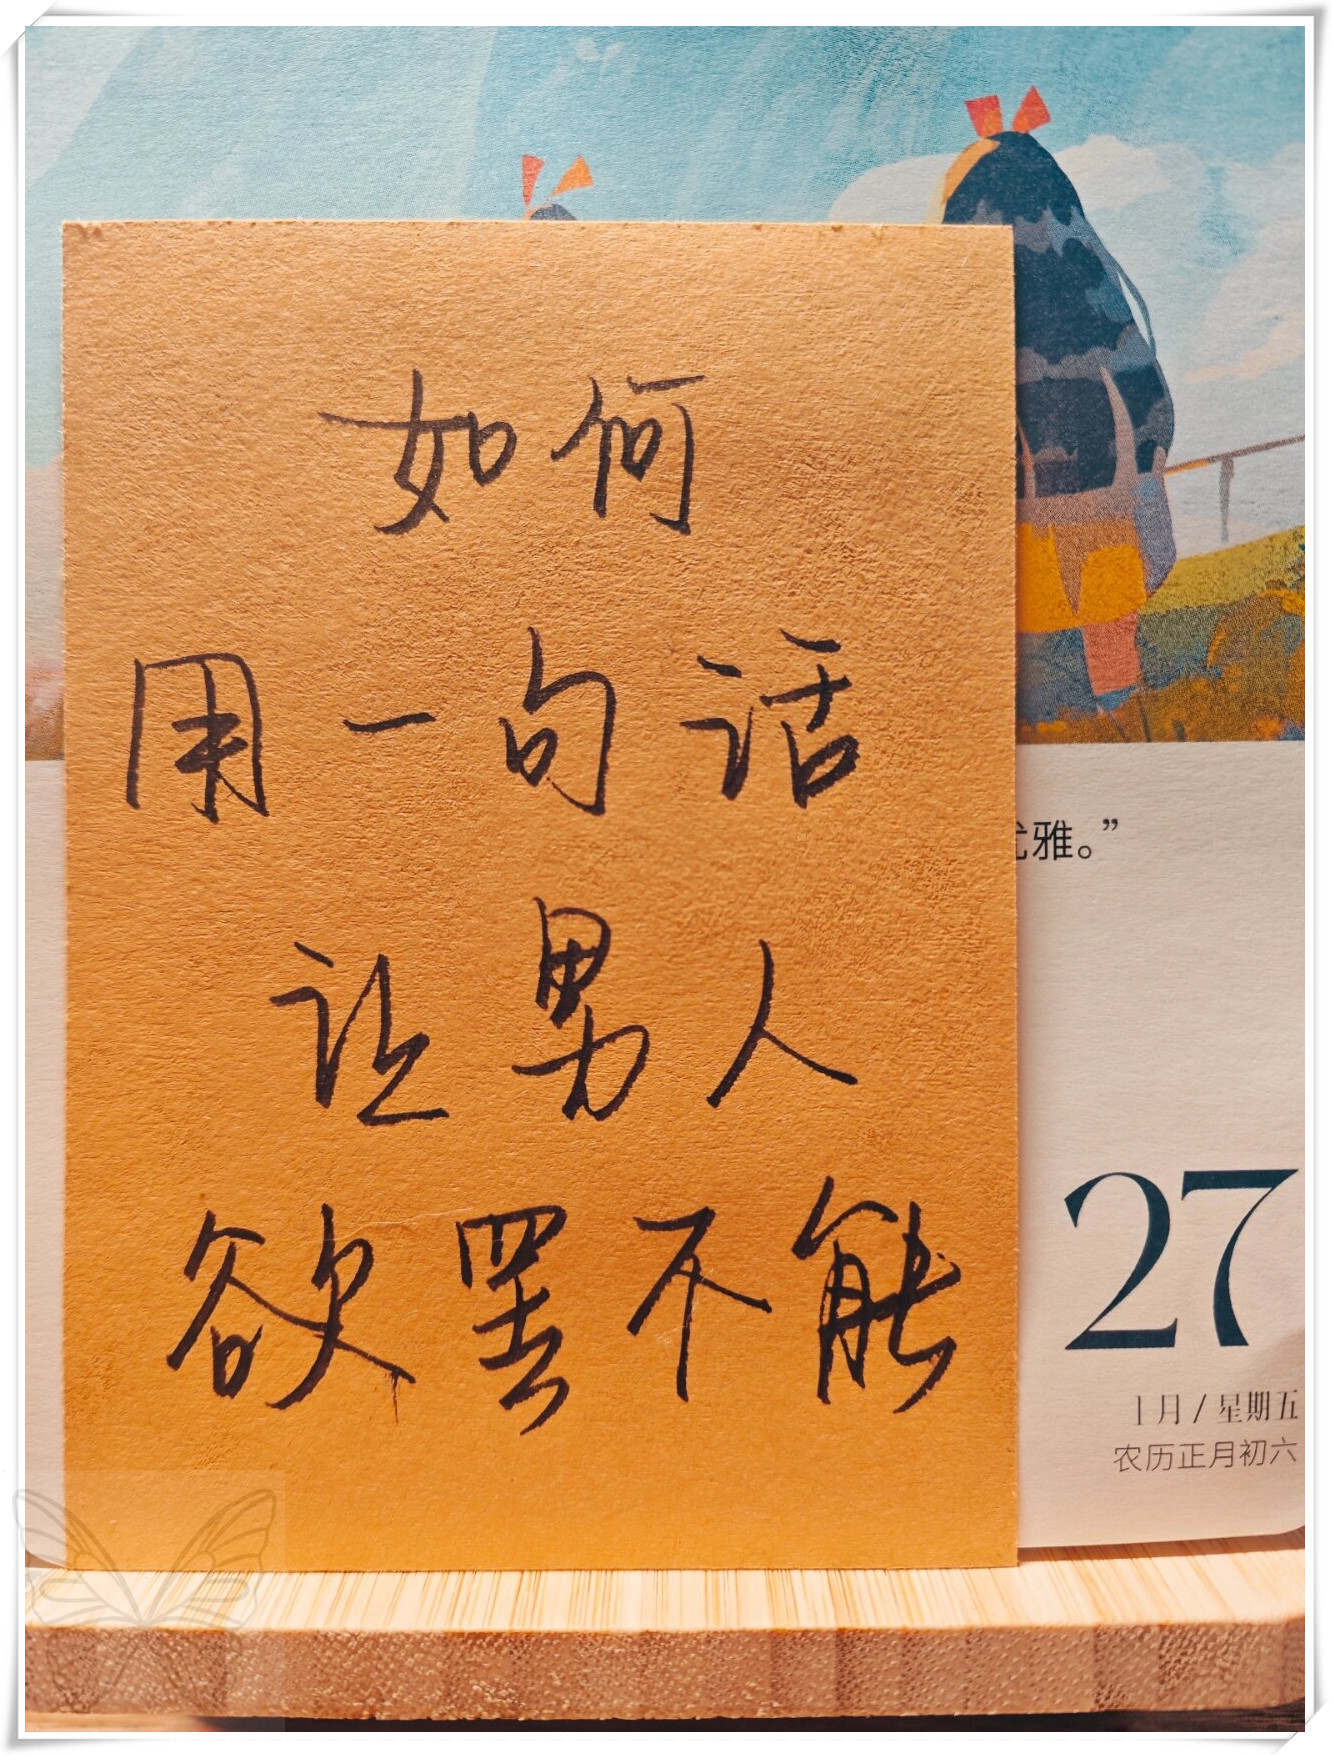 如何
用一句话
让男人
欲罢不能
雅。”
27
1月/星期五
农历正月初六